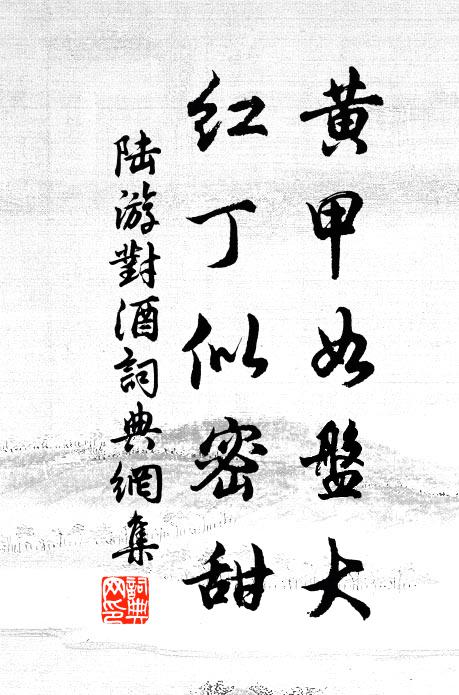 黄甲如盤大
紅丁似密甜
陆游對酒詞典網集
詞典网印